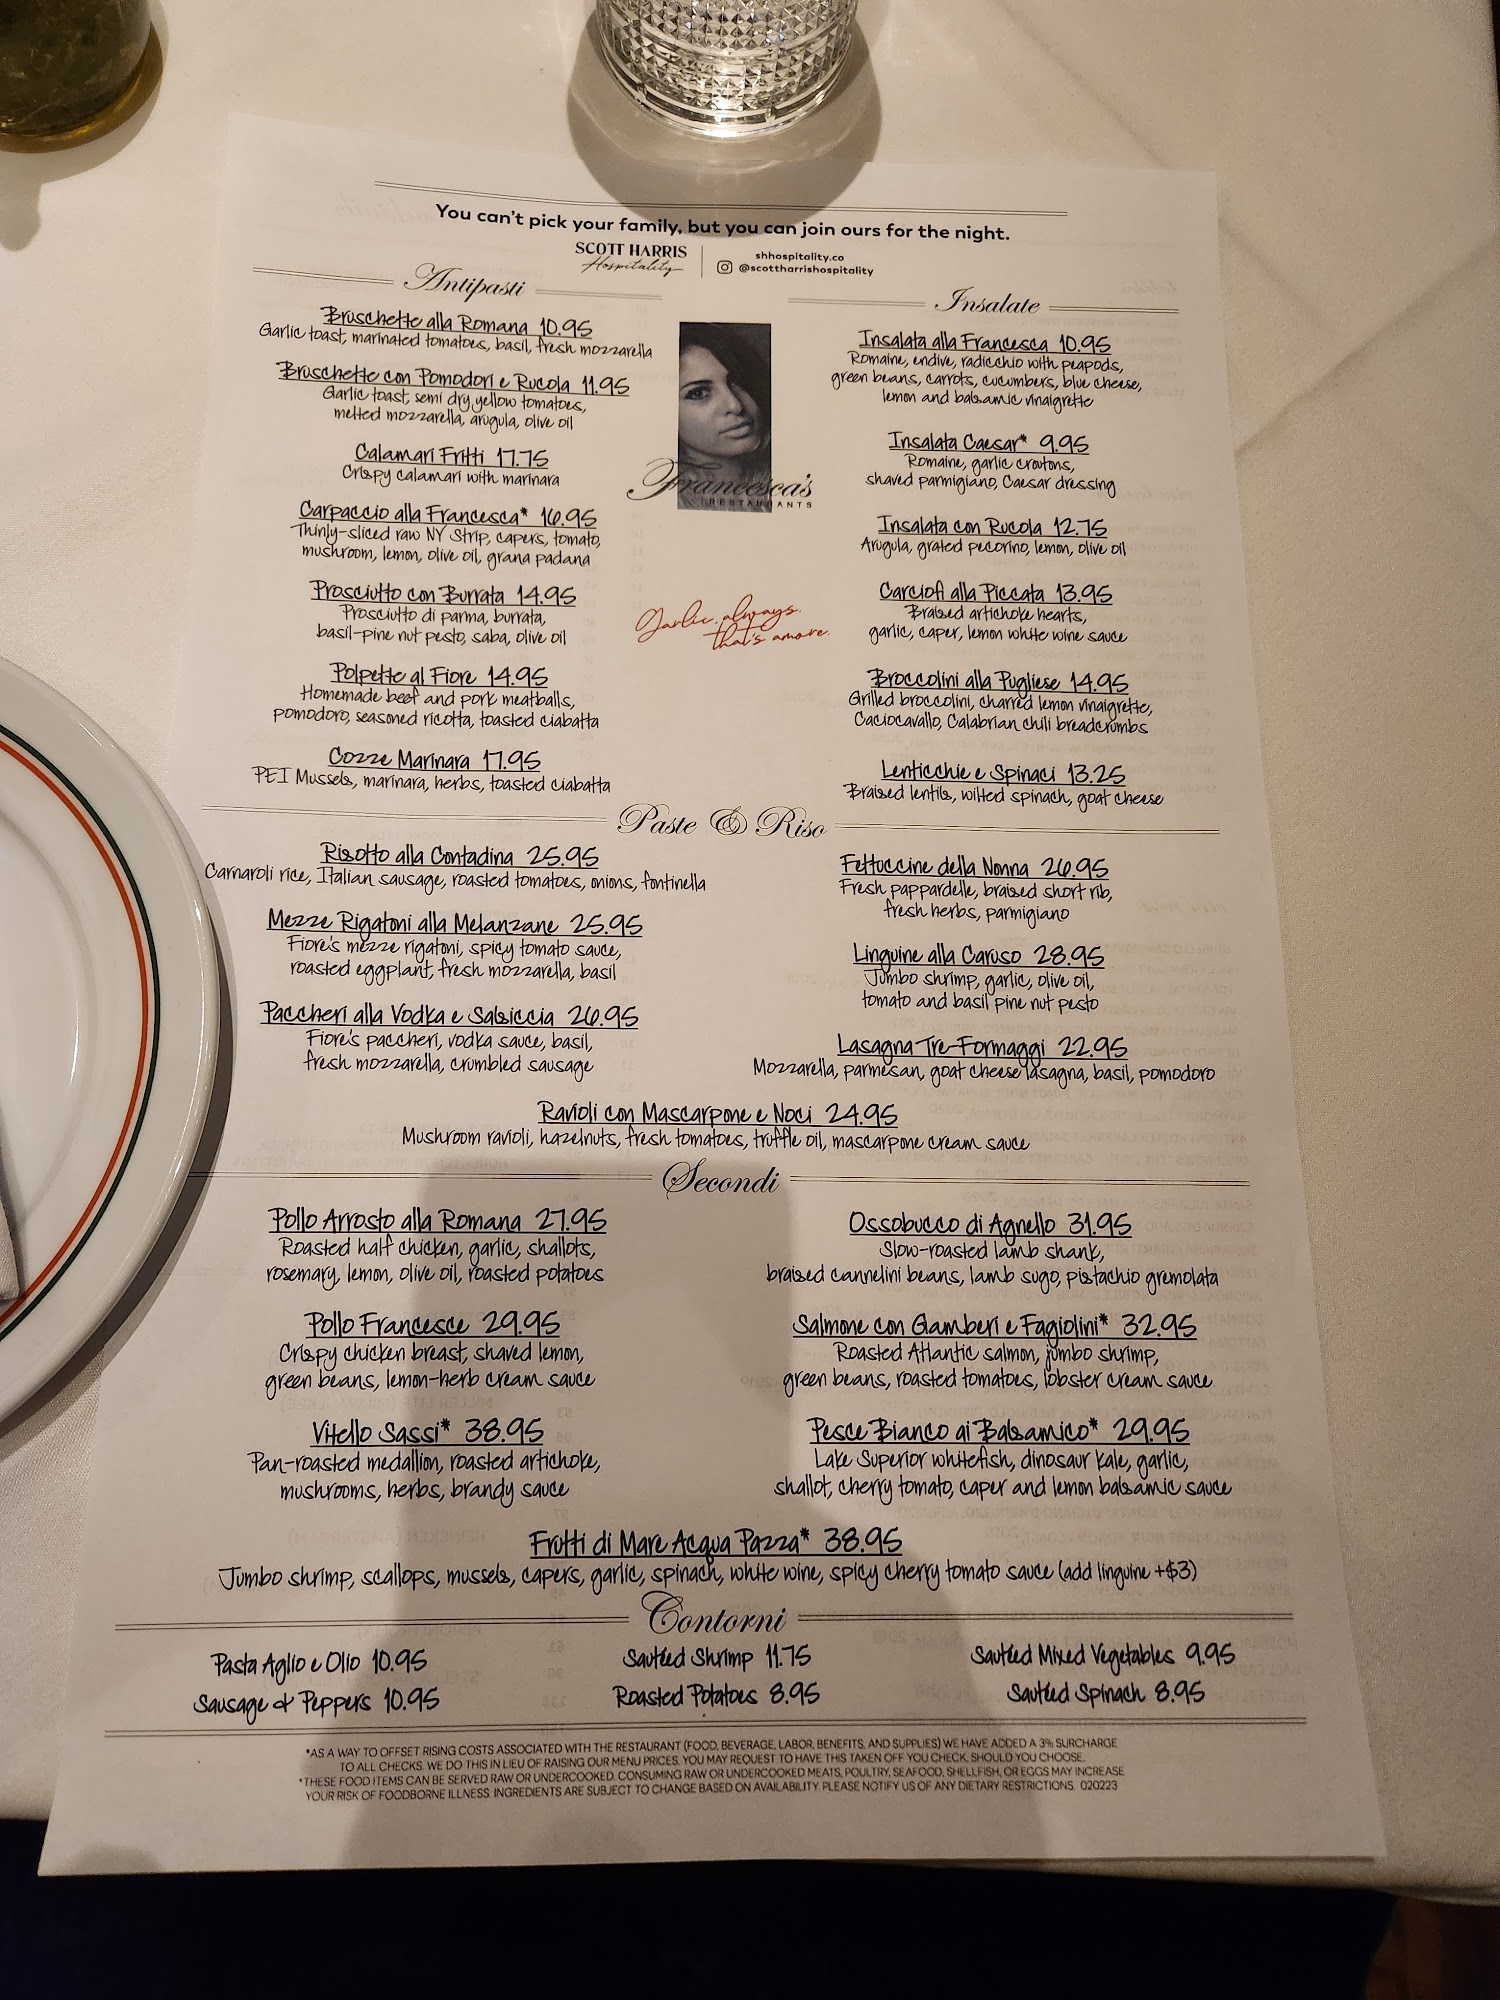 You can't pick your family, but you can join ours for the night.
SCOTT HARRIS
Hospitality
shhospitality.co
@scottharrishospitality
Antipasti
Bruschette alla Romana 10.95
Garlic toast, marinated tomatoes, basil, fresh mozzarella
Bruschette con Pomodori e Rucola 11.95
Garlic toast, semi dry yellow tomatoes,
melted mozzarella, arugula, olive oil
Calamari Fritti 17.75
Crispy calamari with marinara
Carpaccio alla Francesca* 16.95
Thinly-sliced raw NY Strip, capers, tomato,
mushroom, lemon, olive oil, grana padana
Prosciutto con Burrata 14.95
Prosciutto di parma, burrata,
basil-pine nut pesto, saba, olive oil
Polpette al Fiore 14.95
Homemade beef and pork meatballs,
pomodoro, seasoned ricotta, toasted ciabatta
Cozze Marinara 17.95
PEI Mussels, marinara, herbs, toasted ciabatta
Francesca's
RESTAURANTS
Garlic. always.
that's amore.
Insalate
Insalata alla Francesca 10.95
Romaine, endive, radicchio with peapods,
green beans, carrots, cucumbers, blue cheese,
lemon and balsamic vinaigrette
Insalata Caesar* 9.95
Romaine, garlic croutons,
shaved parmigiano, Caesar dressing
Insalata con Rucola 12.75
Arugula, grated pecorino, lemon, olive oil
Carciofi alla Piccata 13.95
Braised artichoke hearts,
garlic, caper, lemon white wine sauce
Broccolini alla Pugliese 14.95
Grilled broccolini, charred lemon vinaigrette,
Caciocavallo, Calabrian chili breadcrumbs
Lenticchie e Spinaci 13.25
Braised lentils, wilted spinach, goat cheese
Paste & Riso
Risotto alla Contadina 25.95
Carnaroli rice, Italian sausage, roasted tomatoes, onions, fontinella
Mezze Rigatoni alla Melanzane 25.95
Fiore's mezze rigatoni, spicy tomato sauce,
roasted eggplant, fresh mozzarella, basil
Paccheri alla Vodka e Salsiccia 26.95
Fiore's paccheri, vodka sauce, basil,
fresh mozzarella, crumbled sausage
Fettuccine della Nonna 26.95
Fresh pappardelle, braised short rib,
fresh herbs, parmigiano
Linguine alla Caruso 28.95
Jumbo shrimp, garlic, olive oil,
tomato and basil pine nut pesto
Lasagna Tre-Formaggi 22.95
Mozzarella, parmesan, goat cheese lasagna, basil, pomodoro
Ravioli con Mascarpone e Noci 24.95
Mushroom ravioli, hazelnuts, fresh tomatoes, truffle oil, mascarpone cream sauce
Secondi
Pollo Arrosto alla Romana 27.95
Roasted half chicken, garlic, shallots,
rosemary, lemon, olive oil, roasted potatoes
Pollo Francesce 29.95
Crispy chicken breast, shaved lemon,
green beans, lemon-herb cream sauce
Vitello Sassi* 38.95
Pan-roasted medallion, roasted artichoke,
mushrooms, herbs, brandy sauce
Ossobucco di Agnello 31.95
Slow-roasted lamb shank,
braised cannelini beans, lamb sugo, pistachio gremolata
Salmone con Gamberi e Fagiolini* 32.95
Roasted Atlantic salmon, jumbo shrimp,
green beans, roasted tomatoes, lobster cream sauce
Pesce Bianco ai Balsamico* 29.95
Lake Superior whitefish, dinosaur kale, garlic,
shallot, cherry tomato, caper and lemon balsamic sauce
Frutti di Mare Acqua Pazza* 38.95
Jumbo shrimp, scallops, mussels, capers, garlic, spinach, white wine, spicy cherry tomato sauce (add linguine +$3)
Contorni
Pasta Aglio e Olio 10.95
Sautéed Shrimp 11.75
Sautéed Mixed Vegetables 9.95
Sausage & Peppers 10.95
Roasted Potatoes 8.95
Sautéed Spinach 8.95
*AS A WAY TO OFFSET RISING COSTS ASSOCIATED WITH THE RESTAURANT (FOOD, BEVERAGE, LABOR, BENEFITS, AND SUPPLIES) WE HAVE ADDED A 3% SURCHARGE
TO ALL CHECKS. WE DO THIS IN LIEU OF RAISING OUR MENU PRICES. YOU MAY REQUEST TO HAVE THIS TAKEN OFF YOU CHECK, SHOULD YOU CHOOSE.
*THESE FOOD ITEMS CAN BE SERVED RAW OR UNDERCOOKED. CONSUMING RAW OR UNDERCOOKED MEATS, POULTRY, SEAFOOD, SHELLFISH, OR EGGS MAY INCREASE
YOUR RISK OF FOODBORNE ILLNESS. INGREDIENTS ARE SUBJECT TO CHANGE BASED ON AVAILABILITY. PLEASE NOTIFY US OF ANY DIETARY RESTRICTIONS. 020223